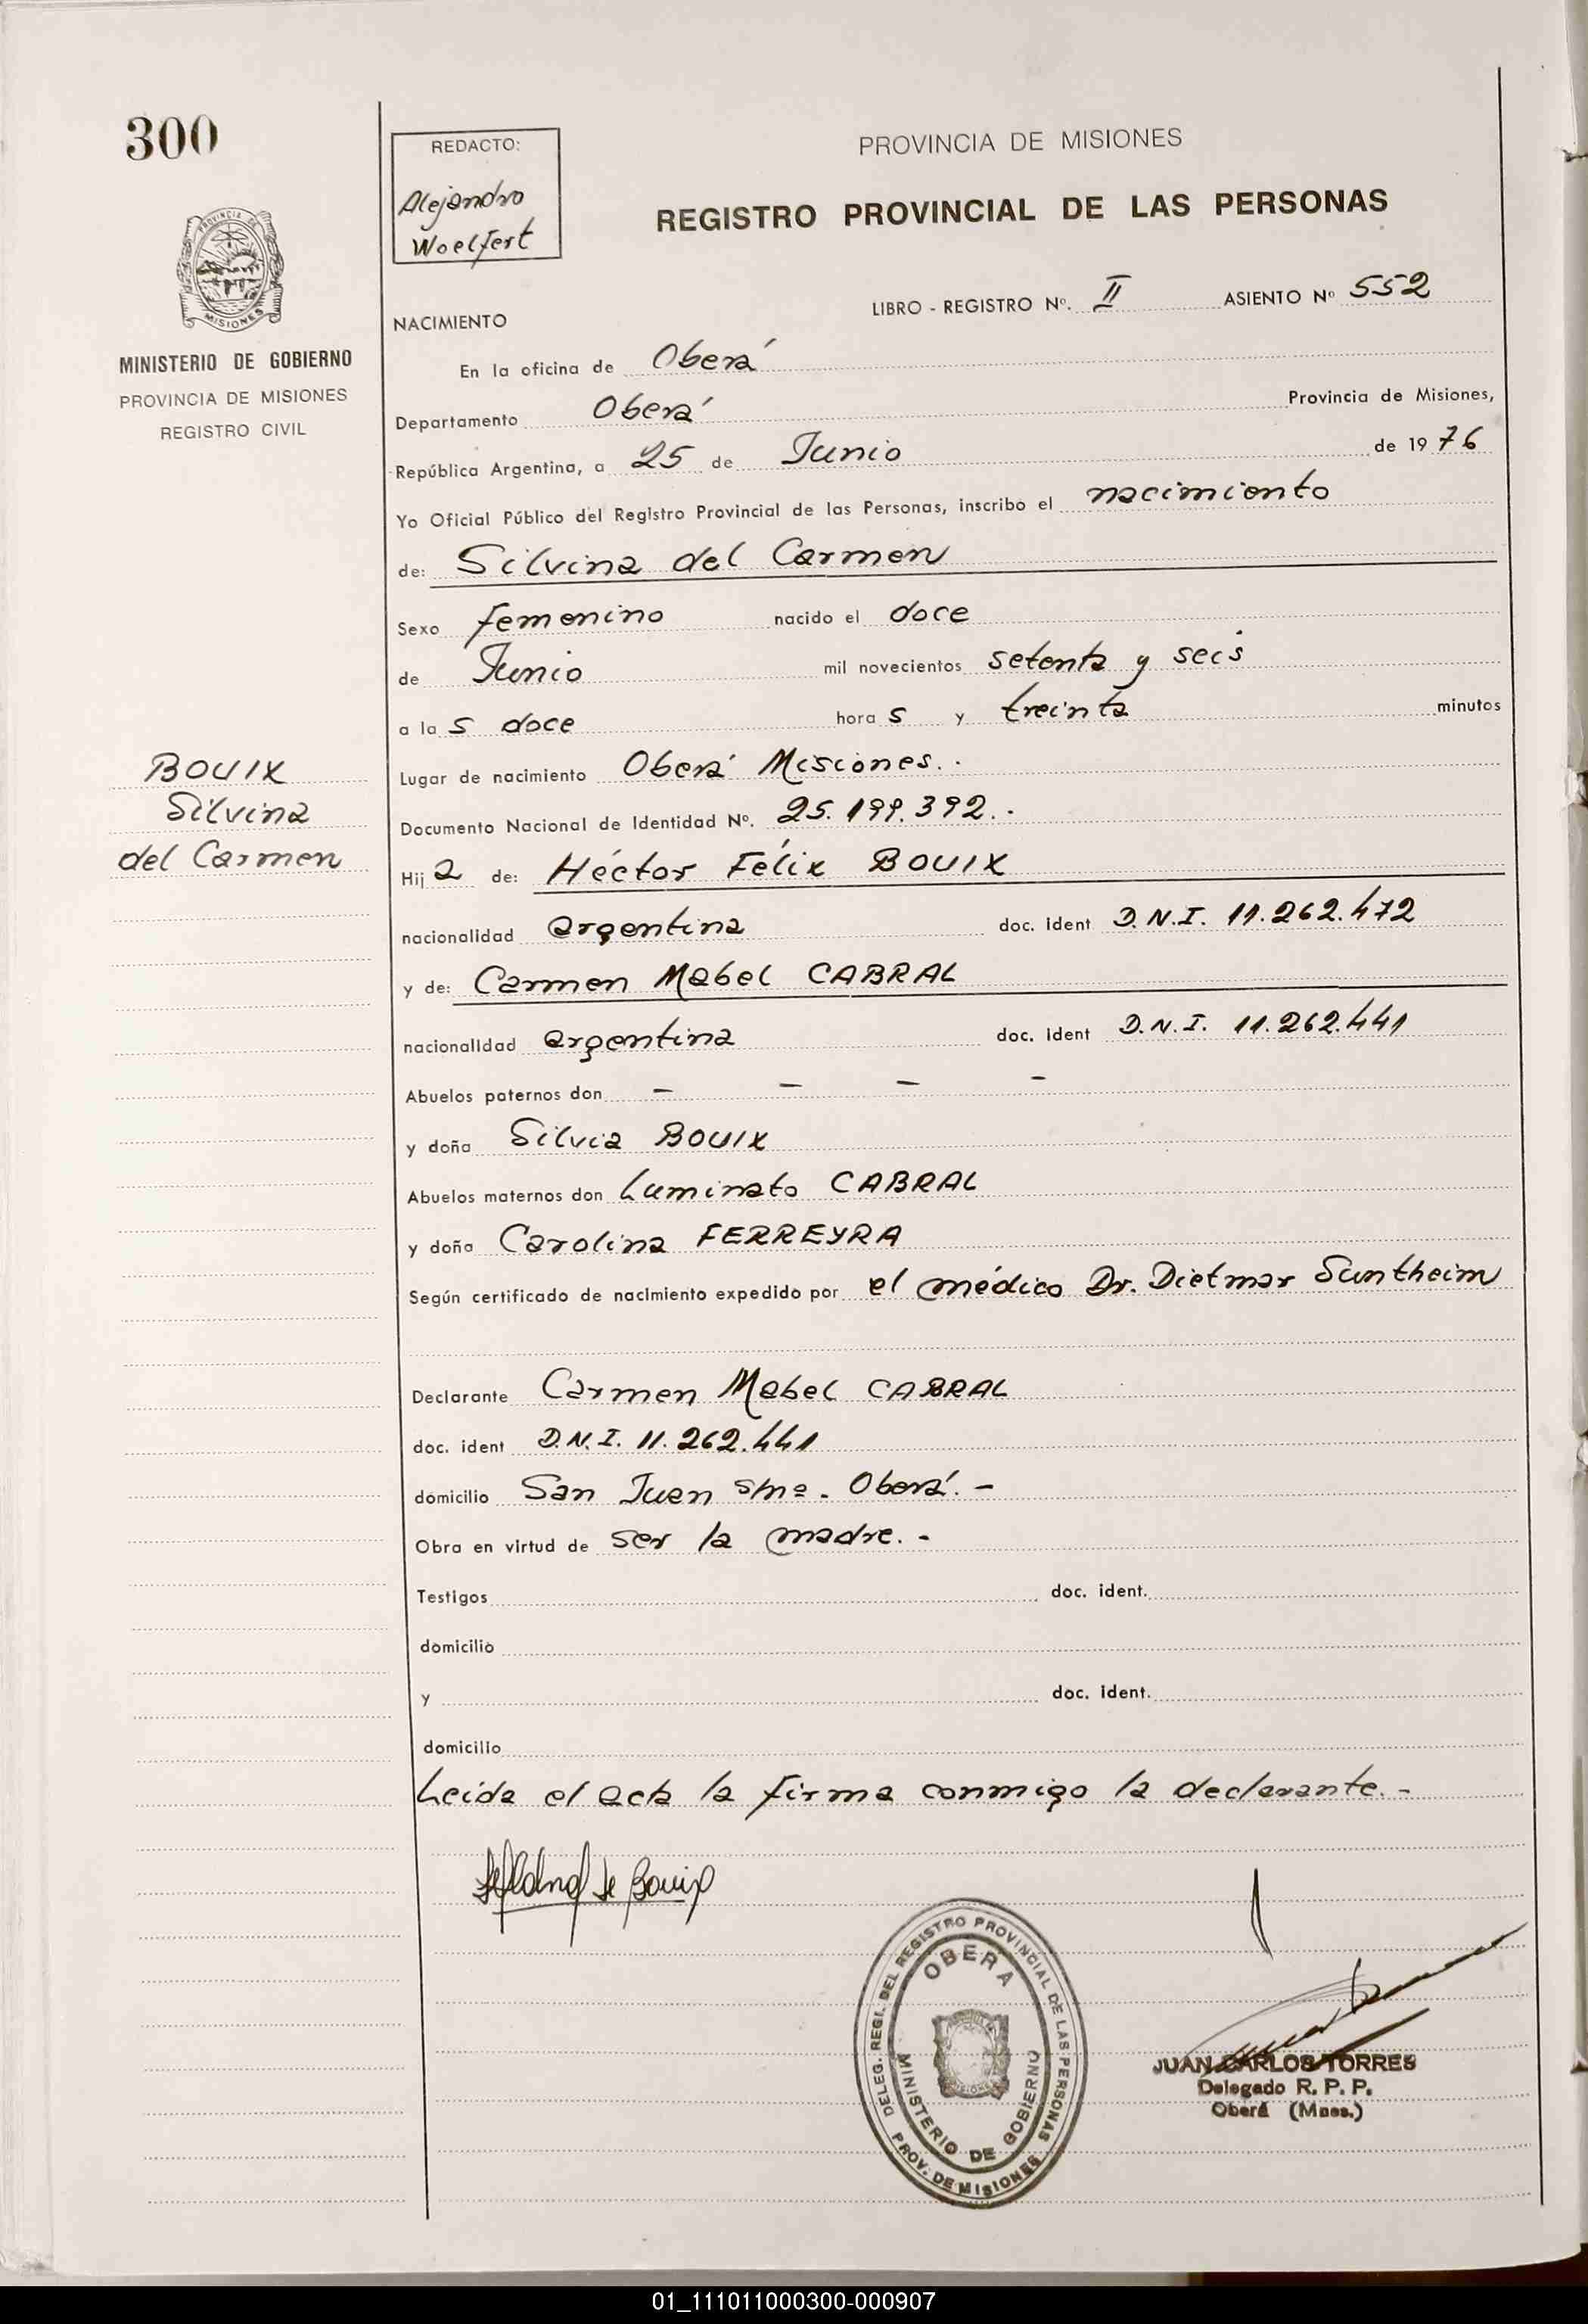 300
PROVINCIA DE MISIONES
MINISTERIO DE GOBIERNO
PROVINCIA DE MISIONES
REGISTRO CIVIL
BOUIX
Silvina
del Carmen
REDACTO:
Alejandro
Woelfert
PROVINCIA DE MISIONES
REGISTRO PROVINCIAL DE LAS PERSONAS
LIBRO - REGISTRO Nº. II ASIENTO Nº 552
NACIMIENTO
En la oficina de Oberá
Departamento Oberá Provincia de Misiones,
República Argentina, a 25 de Junio de 1976
Yo Oficial Público del Registro Provincial de las Personas, inscribo el nacimiento
de: Silvina del Carmen
Sexo femenino nacido el doce
de Junio mil novecientos setenta y seis
a la s doce hora s y treinta minutos
Lugar de nacimiento Oberá Misiones.
Documento Nacional de Identidad Nº. 25.199.392.-
Hij a de: Héctor Félix BOUIX
nacionalidad argentina doc. ident D.N.I. 11.262.472
y de: Carmen Mabel CABRAL
nacionalidad argentina doc. ident D.N.I. 11.262.441
Abuelos paternos don - - - -
y doña Silvia BOUIX
Abuelos maternos don Luminato CABRAL
y doña Carolina FERREYRA
Según certificado de nacimiento expedido por el médico Dr. Dietmar Suntheim
Declarante Carmen Mabel CABRAL
doc. ident D.N.I. 11.262.441
domicilio San Juan s/nº. Oberá.-
Obra en virtud de ser la madre.-
Testigos doc. ident.
domicilio
y doc. ident.
domicilio
Leída el acta la firma conmigo la declarante.-
de Bouix
DELEG. REGI. DEL REGISTRO PROVINCIAL DE LAS PERSONAS
OBERA
MINISTERIO DE GOBIERNO
PROV. DE MISIONES
JUAN CARLOS TORRES
Delegado R. P. P.
Oberá (Mnes.)
01_111011000300-000907